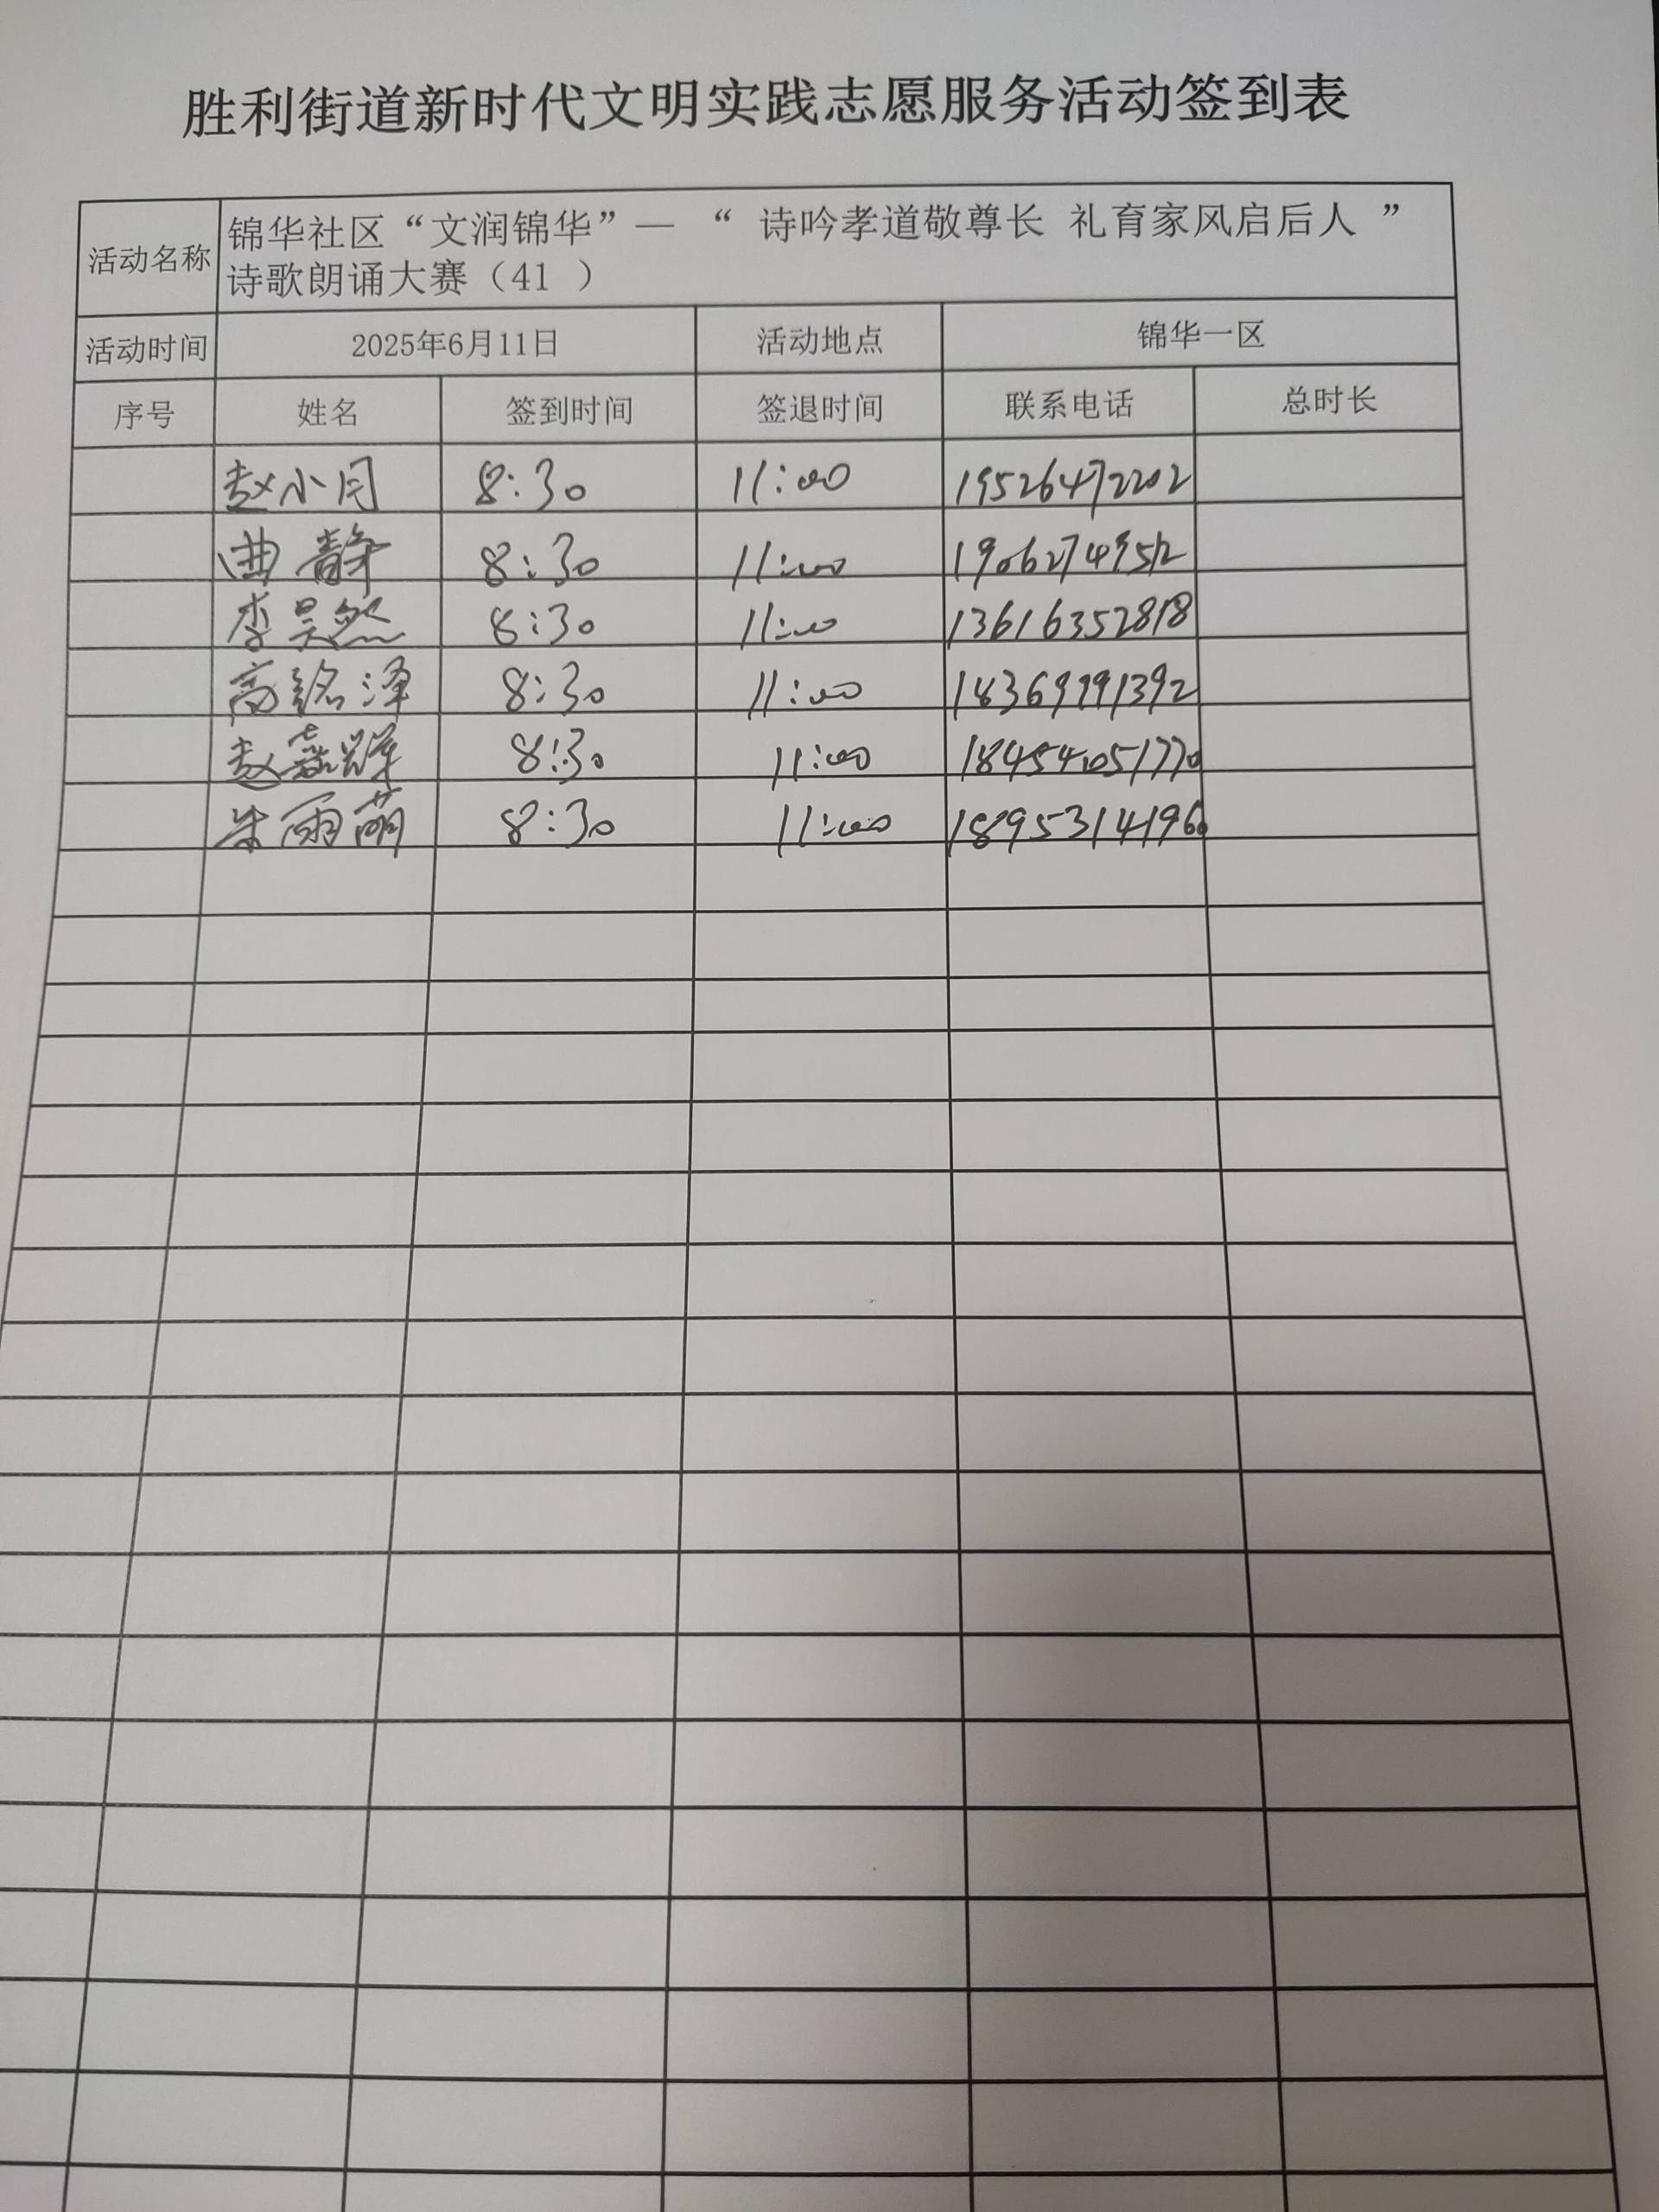 胜利街道新时代文明实践志愿服务活动签到表
活动名称 锦华社区“文润锦华”— “ 诗吟孝道敬尊长 礼育家风启后人 ”
诗歌朗诵大赛（41 ）
活动时间 2025年6月11日 活动地点 锦华一区
序号 姓名 签到时间 签退时间 联系电话 总时长
赵小 8:30 11:00 19526472202
曲静 8:30 11:00 19062749512
李昊然 8:30 11:00 13616352818
高铭泽 8:30 11:00 18369991392
赵嘉辉 8:30 11:00 18454051770
朱雨萌 8:30 11:00 18953141960